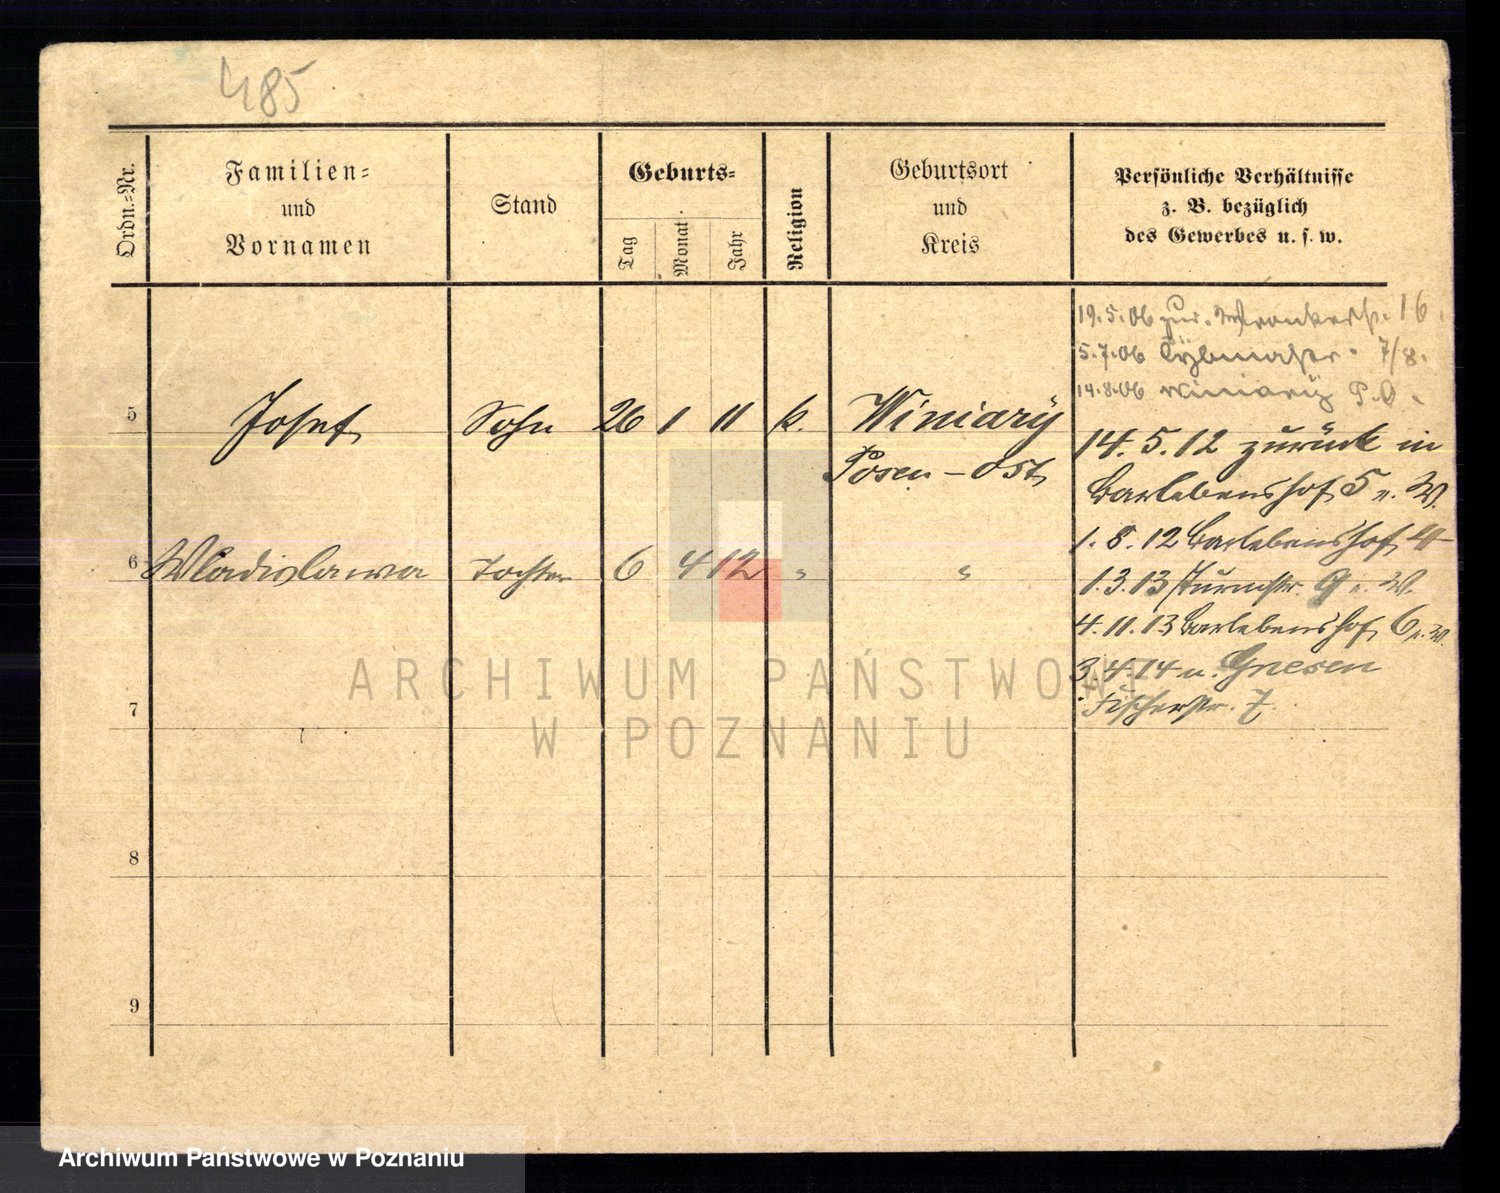 485
Ordn.-Nr.
Familien-
und
Vornamen
Stand
Geburts-
Tag
Monat
Jahr
Religion
Geburtsort
und
Kreis
Persönliche Verhältnisse
z. B. bezüglich
des Gewerbes u. s. w.
19.5.06 zur. Wronkerstr. 16.
5.7.06 7/8.
14.8.06 Winiary P.O.
5 Josef Sohn 26 1 11 k. Winiary
Posen-Ost
14.5.12 zurück in
Barlebenshof 5 v. W.
1.8.12 Barlebenshof 4
6 Wladislawa Tochter 6 4 12 " "
1.3.13 Turmstr. 9 v. W.
4.11.13 Barlebenshof 6 v. W.
3.4.14 n. Gnesen
Fischerstr. 7.
7
8
9
ARCHIWUM PAŃSTWOWE
W POZNANIU
Archiwum Państwowe w Poznaniu